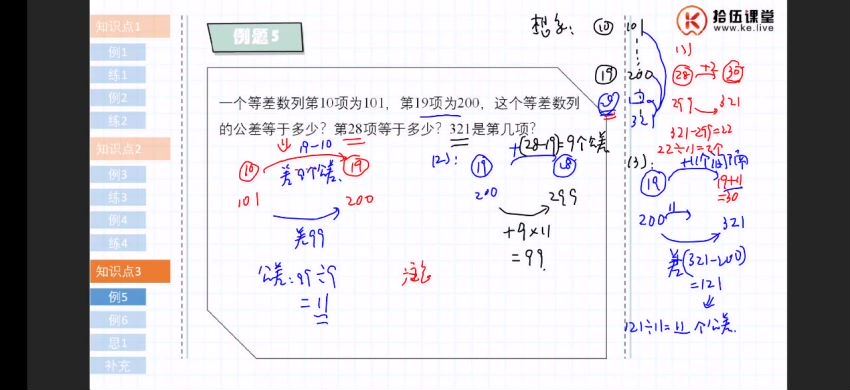 知识点1
例1
练1
例2
练2
知识点2
例3
练3
例4
练4
知识点3
例5
例6
思1
补充
例题5
拾伍课堂
www.ke.live
一个等差数列第10项为101，第19项为200，这个等差数列
的公差等于多少？第28项等于多少？321是第几项？
19-10
⑩
⑲
差9个公差
101
200
差99
公差：99÷9
=11
(2)：
+(28-19)=9个公差
⑲
28
200
299
+9×11
=99
⑩ 101
⑲ 200
321
28 +2 30
299 321
321-299=22
22÷11=2个
(3)：
⑲
19+11
=30
200
11
321
差(321-200)
=121
121÷11=11个公差